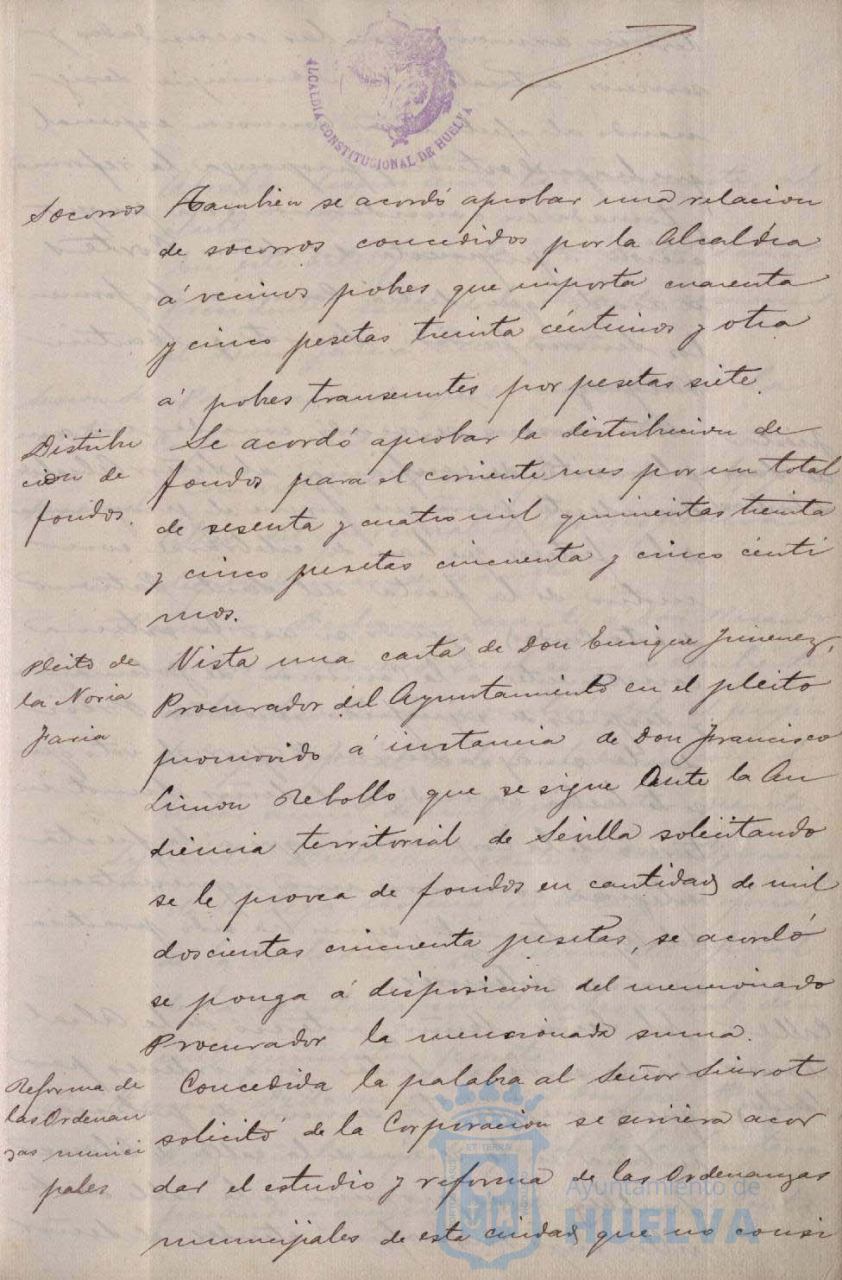 ALCALDÍA CONSTITUCIONAL DE HUELVA
Socorros
Tambien se acordó aprobar una relacion
de socorros concedidos por la Alcaldía
á vecinos pobres que importa cuarenta
y cinco pesetas treinta céntimos y otra
á pobres transeuntes por pesetas siete.
Distribu
cion de
fondos.
Se acordó aprobar la distribucion de
fondos para el corriente mes por un total
de sesenta y cuatro mil quinientas treinta
y cinco pesetas cincuenta y cinco centi
mos.
Pleito de
la Noria
Vista una carta de Don Enrique Jimenez,
Procurador del Ayuntamiento en el pleito
promovido á instancia de Don Francisco
Limon Rebollo que se sigue ante la Au
diencia territorial de Sevilla solicitando
se le provea de fondos en cantidad de mil
doscientas cincuenta pesetas, se acordó
se ponga á disposicion del mencionado
Procurador la mencionada suma.
Reforma de
las Ordenan
zas munici
pales
Concedida la palabra al Señor Siurot
solicitó de la Corporacion se sirviera acor
dar el estudio y reforma de las Ordenanzas
municipales de esta ciudad, que no consi
Ayuntamiento de
HUELVA